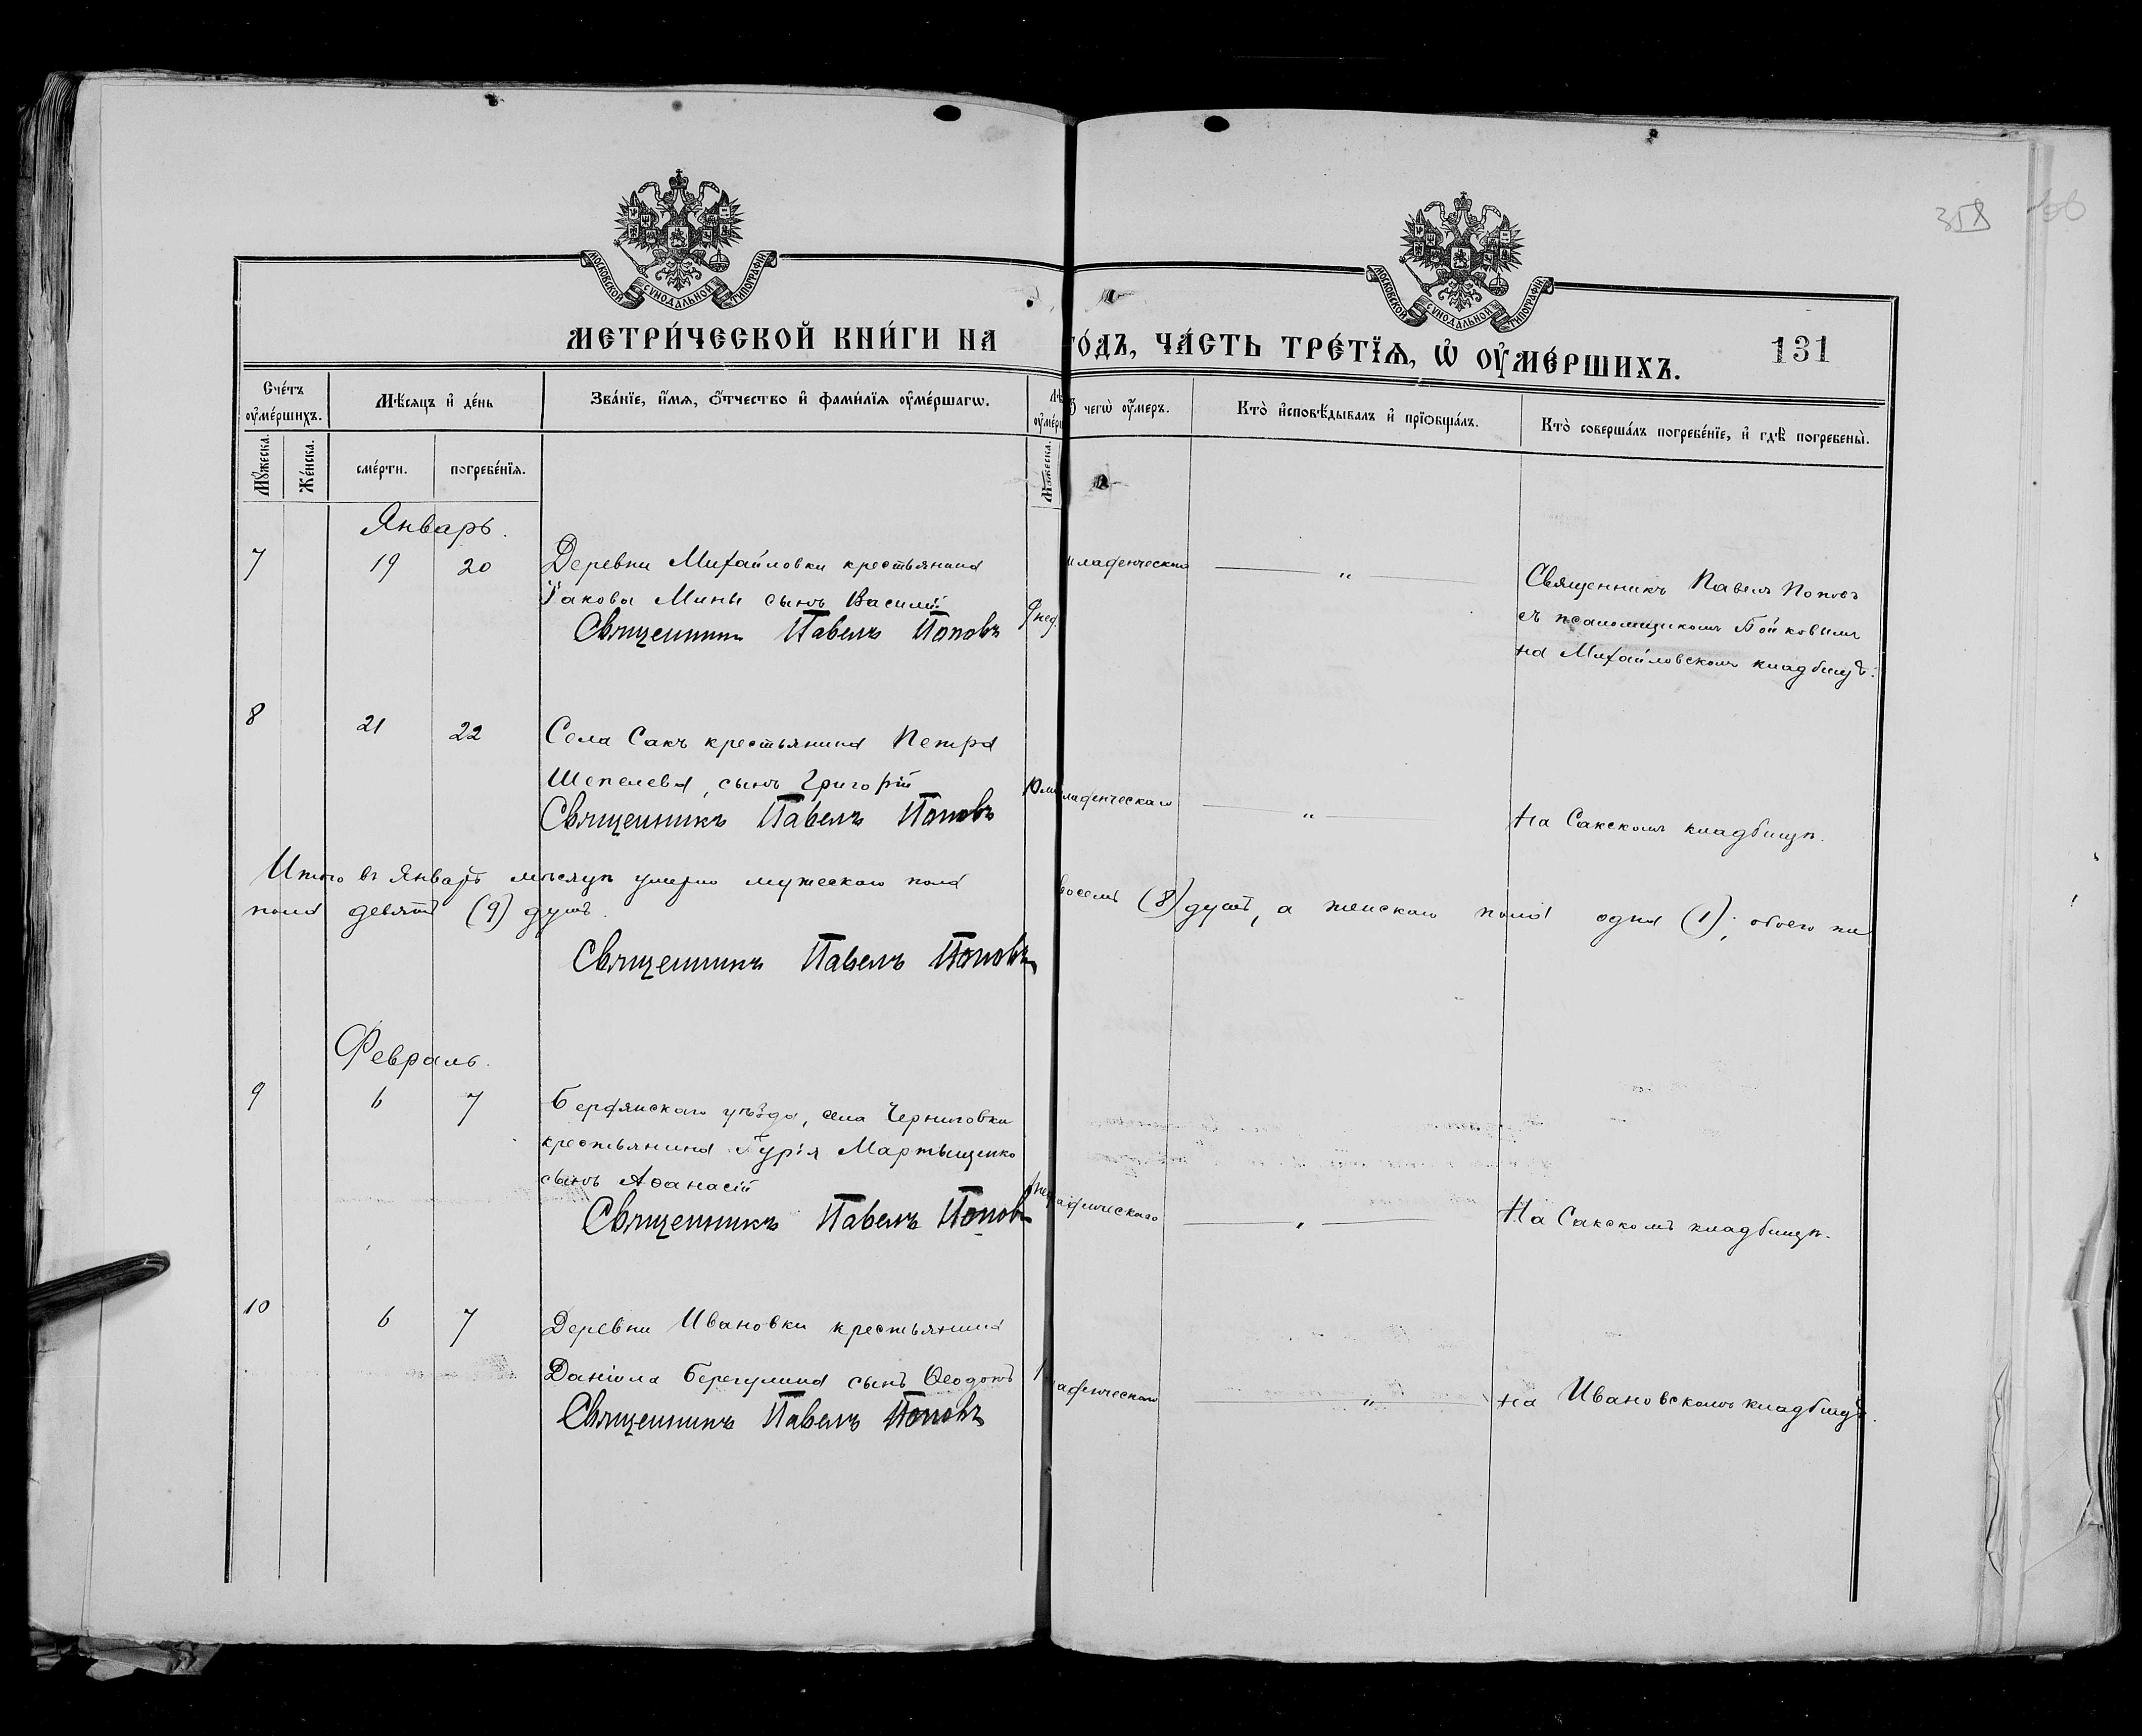 358
МОСКОВСКОЙ СѴНОДАЛЬНОЙ ТИПОГРАФІИ
МОСКОВСКОЙ СѴНОДАЛЬНОЙ ТИПОГРАФІИ
МЕТРИ́ЧЕСКОЙ КНИ́ГИ НА
ГО́ДЪ, ЧА́СТЬ ТРЕ́ТЇѦ, Ѡ҆ ОУ҆МЕ́РШИХЪ.
131
Сче́тъ оу҆ме́ршихъ.
Мѣ́сяцъ и҆ де́нь
Зва́нїе, и҆́мѧ, ѻ҆́тчество и҆ фами́лїѧ оу҆ме́ршагѡ.
чегѡ̀ оу҆́меръ.
Кто̀ и҆сповѣ́дывалъ и҆ прїѻбща́лъ.
Кто̀ соверша́лъ погребе́нїе, и҆ гдѣ̀ погребены̀.
Мꙋ́жеска.
Же́нска.
сме́рти.
погребе́нїѧ.
Мꙋ́жеска.
Январь.
7 19 20 Деревни Михайловки крестьянина
Якова Мины сынъ Василій
Священникъ Павелъ Поповъ
нед.
младенческаго
"
Священникъ Павелъ Поповъ
съ псаломщикомъ Бойковымъ
на Михайловскомъ кладбищѣ.
8 21 22 Села Сакъ крестьянина Петра
Шепелева, сынъ Григорій
Священникъ Павелъ Поповъ
младенческаго
"
На Сакскомъ кладбищѣ.
Итого въ Январѣ мѣсяцѣ умерло мужескаго пола
восемь (8) душъ, а женскаго пола одна (1); обоего
пола девять (9) душъ.
Священникъ Павелъ Поповъ
Февраль.
9 6 7 Бердянскаго уѣзда, села Черниговки
крестьянина Гурія Мартыщенко
сынъ Аѳанасій
Священникъ Павелъ Поповъ
На Сакскомъ кладбищѣ.
10 6 7 Деревни Ивановки крестьянина
Даніила сынъ
Священникъ Павелъ Поповъ
"
На Ивановскомъ кладбищѣ.